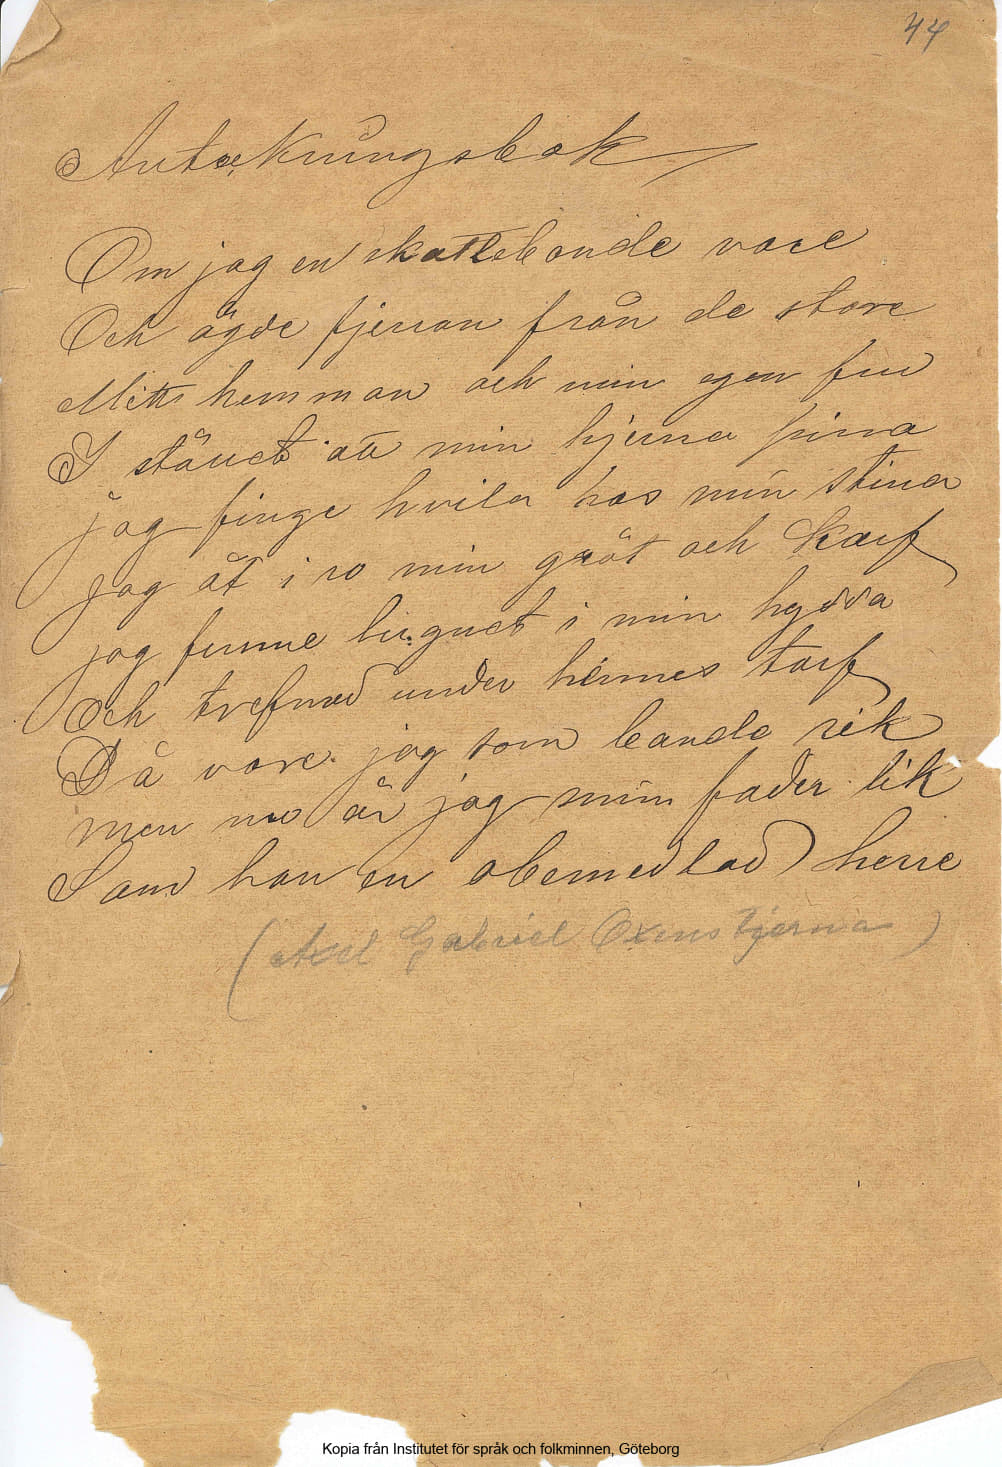 44
Anteckningsbok
Om jag en skattebonde vore
Och ägde fjerran från de store
Mitt hemman och min egen fru
I stället att min hjerna pina
jag finge hvila hos min Stina
jag åt i ro min gröt och Karf
jag funne lugnet i min hydda
Och trefnad under hennes torf
Då vore jag som bonde rik
men nu är jag min fader lik
Som han en obemedlad herre
(Axel Gabriel Oxenstjerna)
Kopia från Institutet för språk och folkminnen, Göteborg